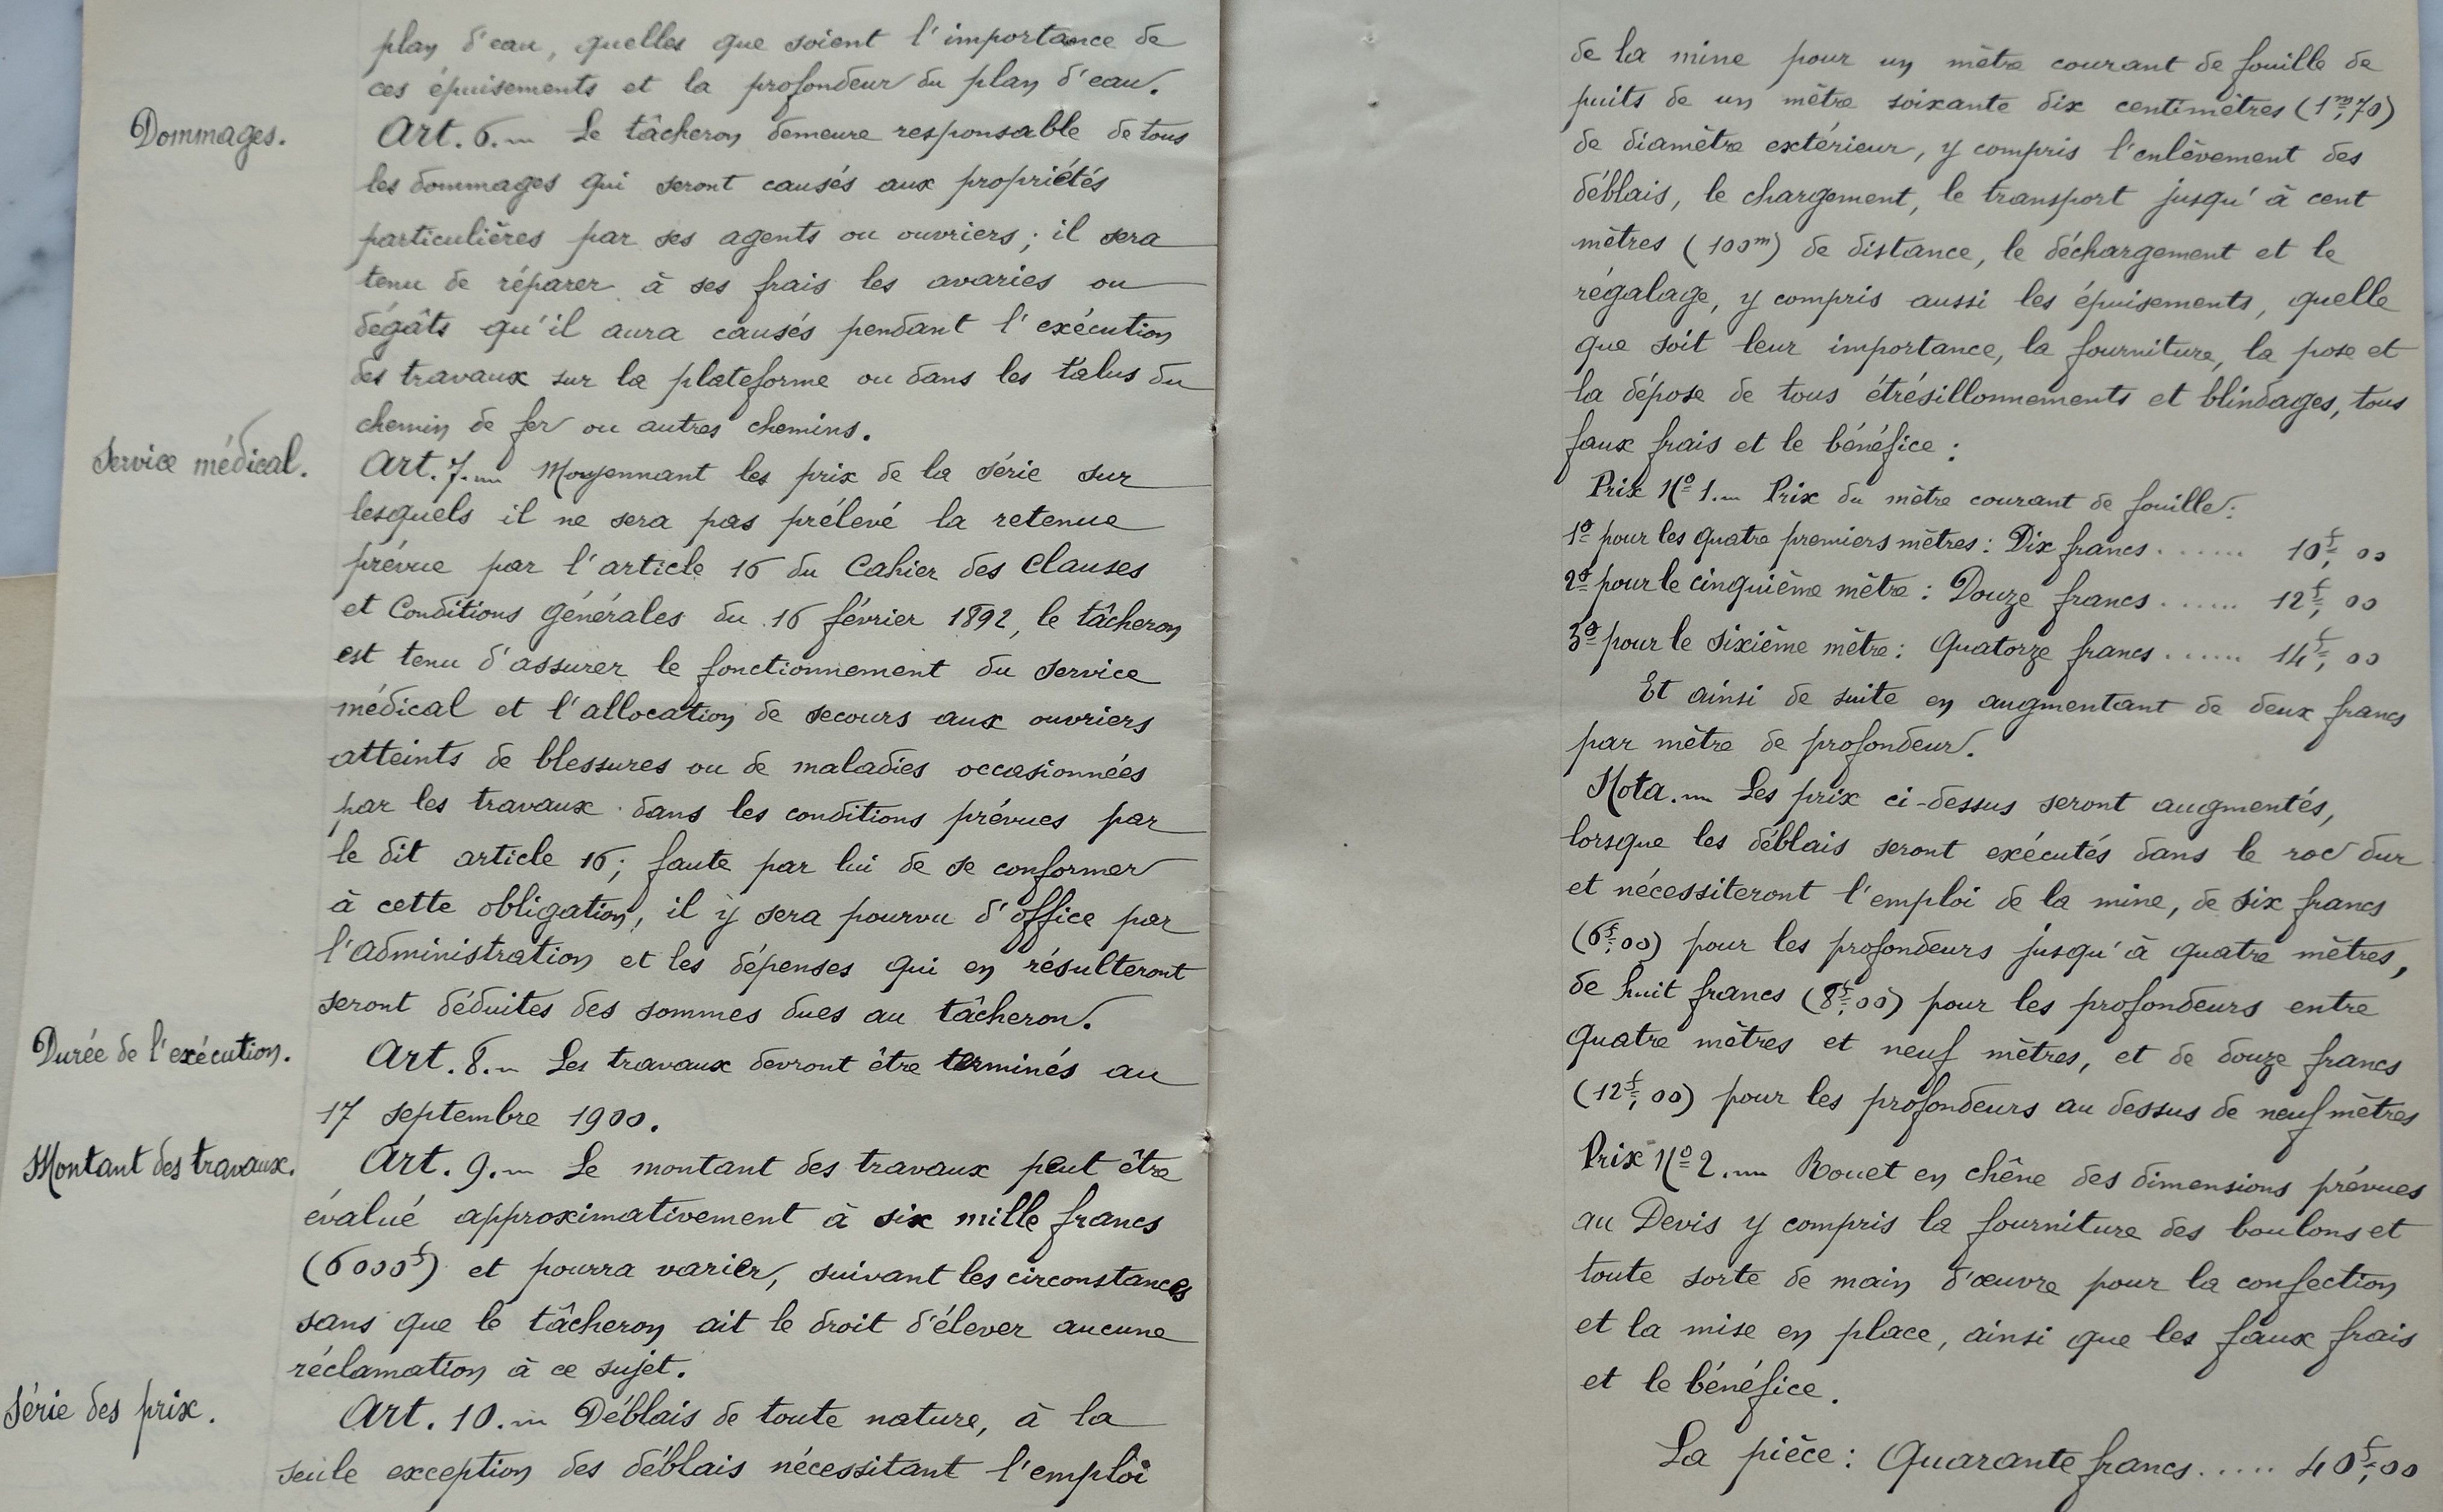 plan d'eau, quelles que soient l'importance de
ces épuisements et la profondeur du plan d'eau.
Dommages.
Art. 6. — Le tâcheron demeure responsable de tous
les dommages qui seront causés aux propriétés
particulières par ses agents ou ouvriers ; il sera
tenu de réparer à ses frais les avaries ou
dégâts qu'il aura causés pendant l'exécution
des travaux sur la plateforme ou dans les talus du
chemin de fer ou autres chemins.
Service médical.
Art. 7. — Moyennant les prix de la série sur
lesquels il ne sera pas prélevé la retenue
prévue par l'article 16 du Cahier des Clauses
et Conditions Générales du 16 février 1892, le tâcheron
est tenu d'assurer le fonctionnement du service
médical et l'allocation de secours aux ouvriers
atteints de blessures ou de maladies occasionnées
par les travaux dans les conditions prévues par
le dit article 16 ; faute par lui de se conformer
à cette obligation, il y sera pourvu d'office par
l'administration et les dépenses qui en résulteront
seront déduites des sommes dues au tâcheron.
Durée de l'exécution.
Art. 8. — Les travaux devront être terminés au
17 septembre 1900.
Montant des travaux.
Art. 9. — Le montant des travaux peut être
évalué approximativement à six mille francs
(6000f) et pourra varier, suivant les circonstances
sans que le tâcheron ait le droit d'élever aucune
réclamation à ce sujet.
Série des prix.
Art. 10. — Déblais de toute nature, à la
seule exception des déblais nécessitant l'emploi
de la mine pour un mètre courant de fouille de
puits de un mètre soixante dix centimètres (1m,70)
de diamètre extérieur, y compris l'enlèvement des
déblais, le chargement, le transport jusqu'à cent
mètres (100m) de distance, le déchargement et le
régalage, y compris aussi les épuisements, quelle
que soit leur importance, la fourniture, la pose et
la dépose de tous étrésillonnements et blindages, tous
faux frais et le bénéfice :
Prix No 1. — Prix du mètre courant de fouille :
1o pour les quatre premiers mètres : Dix francs . . . . . . 10f, 00
2o pour le cinquième mètre : Douze francs . . . . . . 12f, 00
3o pour le sixième mètre : Quatorze francs . . . . . . 14f, 00
Et ainsi de suite en augmentant de deux francs
par mètre de profondeur.
Nota. — Les prix ci-dessus seront augmentés,
lorsque les déblais seront exécutés dans le roc dur
et nécessiteront l'emploi de la mine, de six francs
(6f,00) pour les profondeurs jusqu'à quatre mètres,
de huit francs (8f,00) pour les profondeurs entre
quatre mètres et neuf mètres, et de douze francs
(12f,00) pour les profondeurs au dessus de neuf mètres
Prix No 2. — Rouet en chêne des dimensions prévues
au Devis y compris la fourniture des boulons et
toute sorte de main d'œuvre pour la confection
et la mise en place, ainsi que les faux frais
et le bénéfice.
La pièce : Quarante francs . . . . . 40f,00